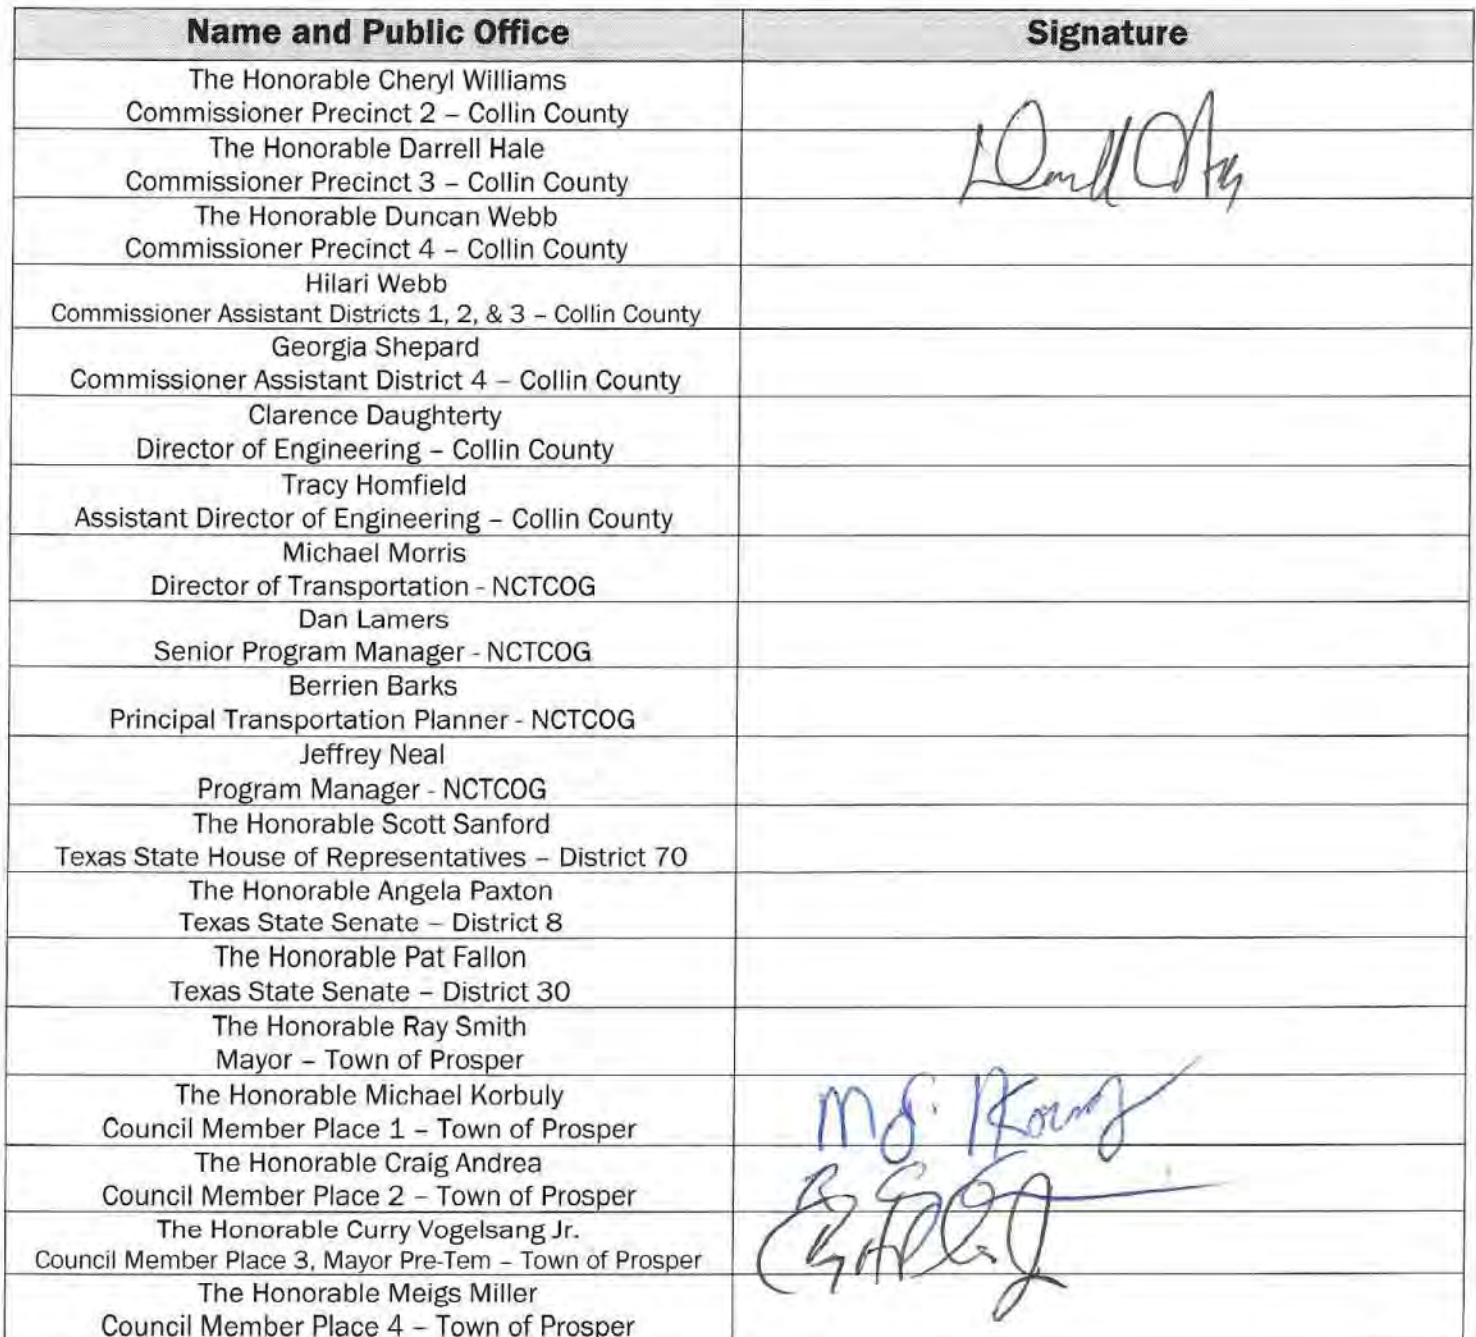 Name and Public Office Signature
The Honorable Cheryl Williams
Commissioner Precinct 2 – Collin County
The Honorable Darrell Hale
Commissioner Precinct 3 – Collin County
The Honorable Duncan Webb
Commissioner Precinct 4 – Collin County
Hilari Webb
Commissioner Assistant Districts 1, 2, & 3 – Collin County
Georgia Shepard
Commissioner Assistant District 4 – Collin County
Clarence Daughterty
Director of Engineering – Collin County
Tracy Homfield
Assistant Director of Engineering – Collin County
Michael Morris
Director of Transportation - NCTCOG
Dan Lamers
Senior Program Manager - NCTCOG
Berrien Barks
Principal Transportation Planner - NCTCOG
Jeffrey Neal
Program Manager - NCTCOG
The Honorable Scott Sanford
Texas State House of Representatives – District 70
The Honorable Angela Paxton
Texas State Senate – District 8
The Honorable Pat Fallon
Texas State Senate – District 30
The Honorable Ray Smith
Mayor – Town of Prosper
The Honorable Michael Korbuly
Council Member Place 1 – Town of Prosper
The Honorable Craig Andrea
Council Member Place 2 – Town of Prosper
The Honorable Curry Vogelsang Jr.
Council Member Place 3, Mayor Pre-Tem – Town of Prosper
The Honorable Meigs Miller
Council Member Place 4 – Town of Prosper